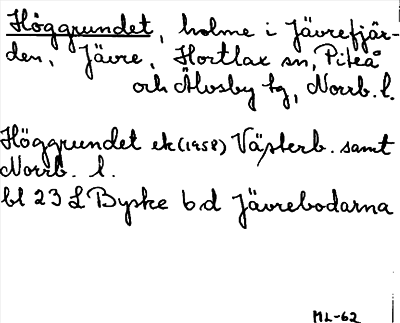 Höggrundet, holme i Jävrefjär-
den, Jävre, Hortlax sn, Piteå
och Älvsby tg, Norrb. l.
Höggrundet ek (1958) Västerb. samt
Norrb. l.
bl 23 L Byske b d Jävrebodarna
ML-62